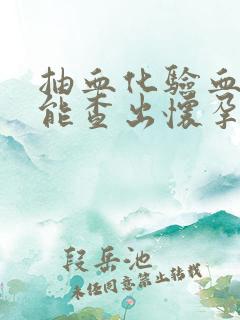 抽血化验血
能查出怀孕
段岳池
未经同意禁止转载